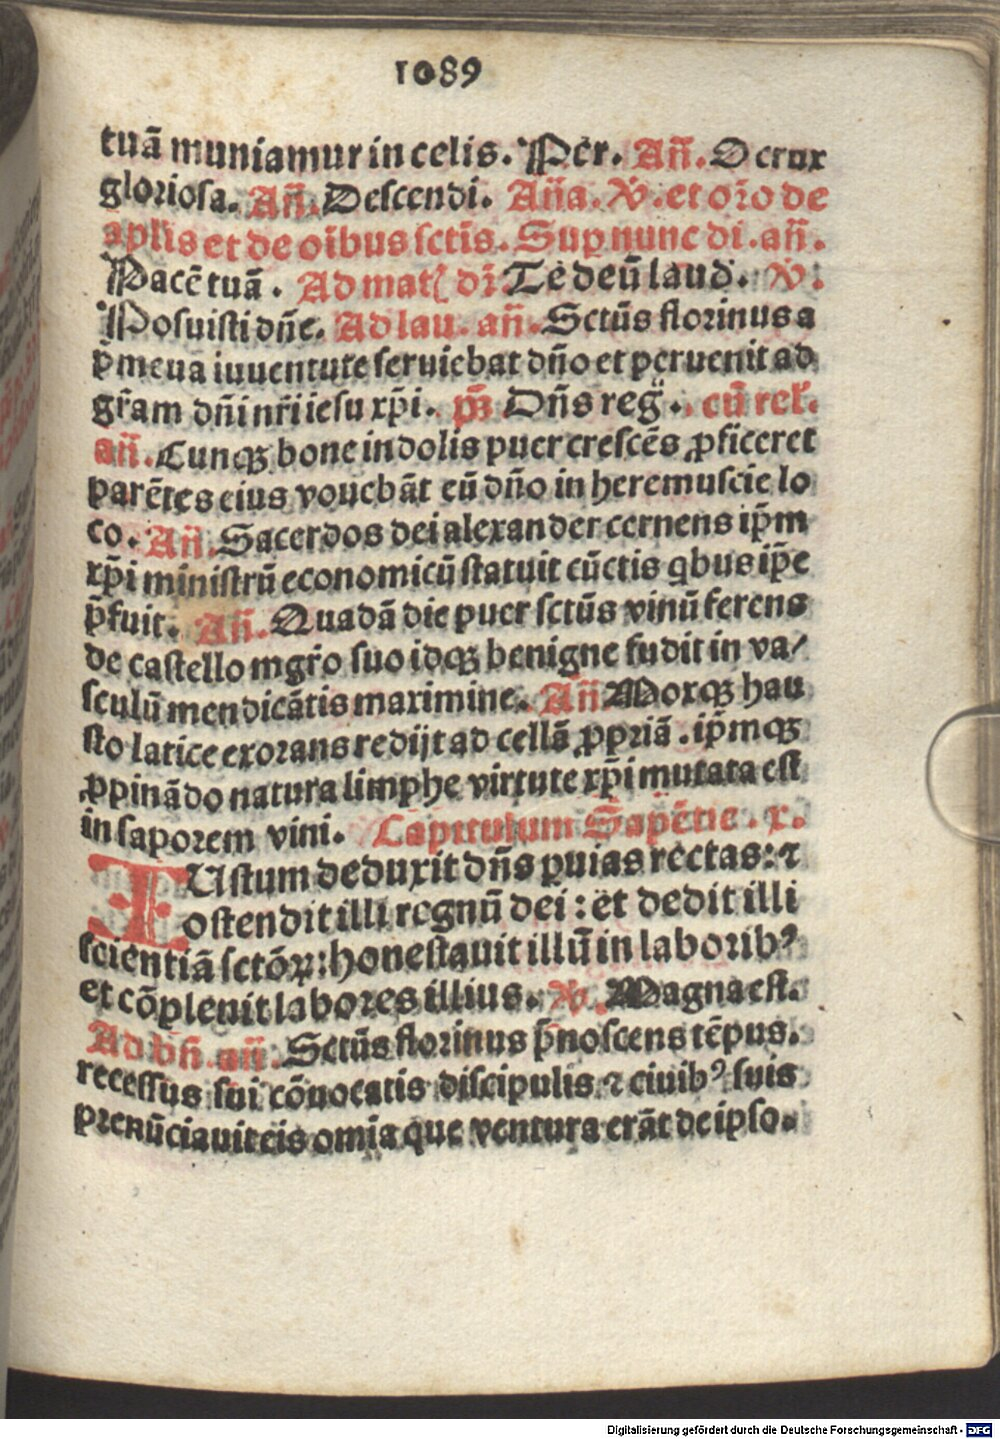 1089
tuā muniamur in celis. Per. Añ. O crux
gloriosa. Añ. Descendi. Aña. V̇. et oŕo de
aplis et de oībus sctīs. Suꝑ nunc di. añ.
Pacē tuā. Ad mat̃ dꝛ̄ Te deū laud. V̇.
Posuisti dñe. Ad lau. añ. Sctūs florinus a
pͥmeua iuuentute seruiebat dño et peruenit ad
gr̄am dñi nr̄i iesu xp̄i. ps̄ Dñs reg̃. cū rel̃.
añ. Cunqꝫ bone indolis puer crescēs ꝓficeret
parētes eius vouebāt eū dño in heremuscie lo
co. Añ. Sacerdos dei alexander cernens ip̄m
xp̄i ministrū economicū statuit cūctis qͥbus ip̄e
p̄fuit. Añ. Quadā die puer sctūs vinū ferens
de castello mgr̄o suo idqꝫ benigne fudit in va/
sculū mendicātis maximine. Añ Moxqꝫ hau
sto latice exorans redijt ad cellā ꝓpriā. ip̄mqꝫ
ꝓpinādo natura limphe virtute xp̄i mutata est
in saporem vini. Capitulum Sapētie. x.
IUstum deduxit dñs ꝑ uias rectas: ⁊
ostendit illi regnū dei: et dedit illi
scientiā sctōꝝ: honestauit illū in laboribꝰ
et cōpleuit labores illius. V̇. Magna est.
Ad bñ. añ. Sctūs florinus p̄noscens tēpus.
recessus sui cōuocatis discipulis ⁊ ciuibꝰ suis
prenūciauit eis omia que ventura erāt de ipso.
Digitalisierung gefördert durch die Deutsche Forschungsgemeinschaft - DFG